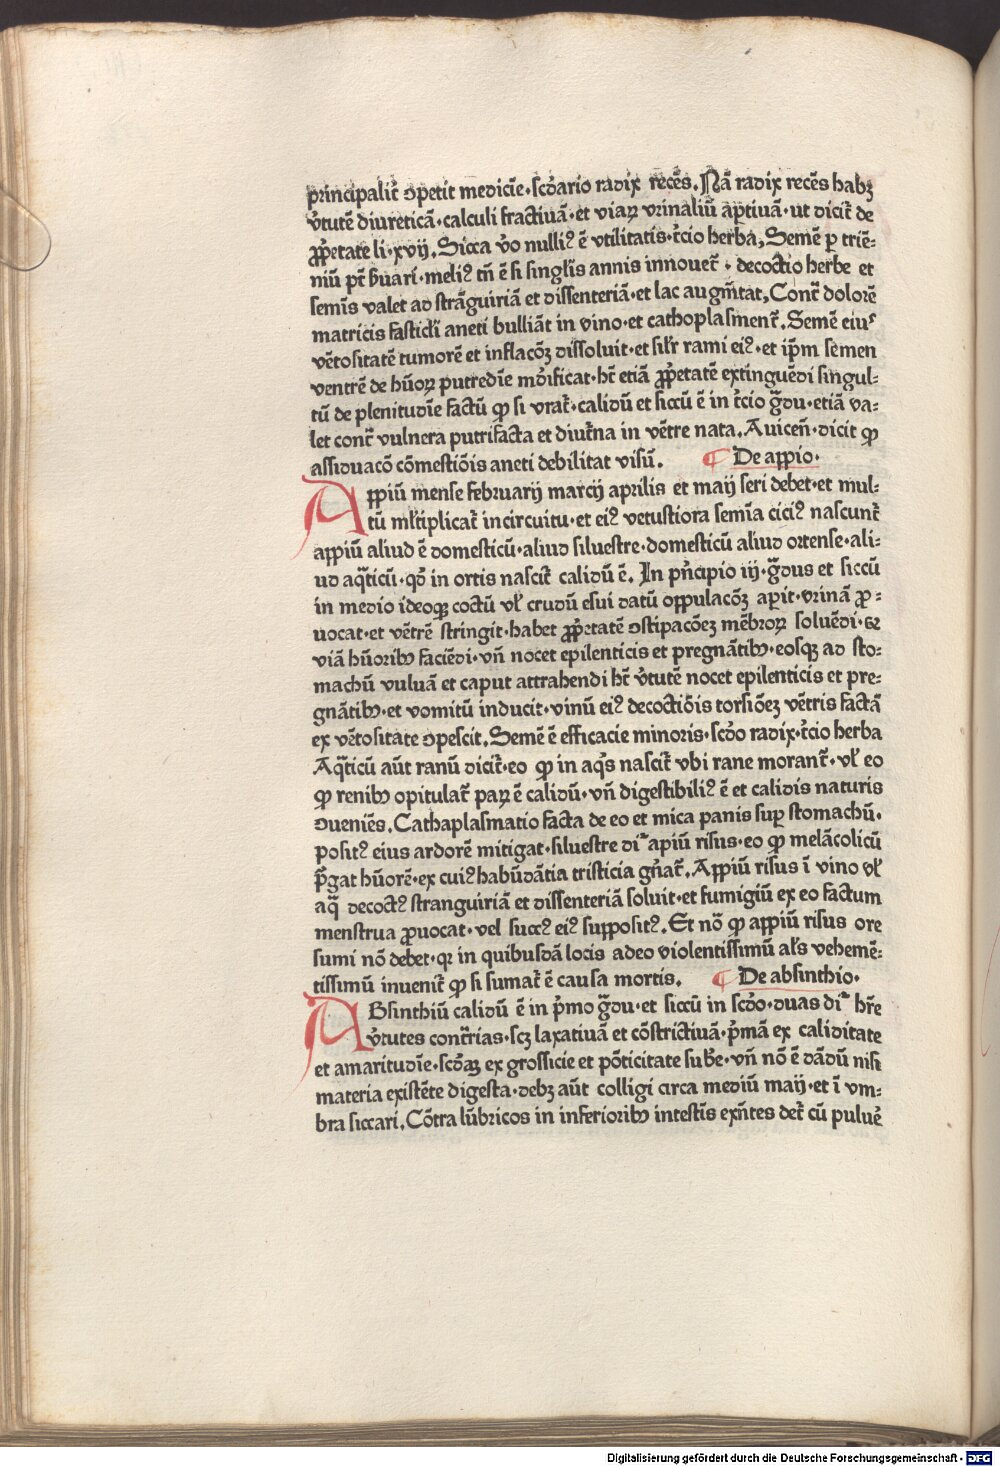 principalit᷑ ꝯpetit medicīe·scd̓ario radix recēs. Nā radix recēs habꝫ
v̓tutē diureticā·calculi fractiuā·et viaꝝ vrinaliū aꝑtiuā·ut dicit᷑ de
ꝓp̓etate li·xvij. Sicca v̓o nulliꝰ ē vtilitatis·t̓cio herba, Semē ꝑ triē⸗
niū pt̄ ẜuari·meliꝰ tn̄ ē si singl̓is annis innouet᷑·decoctio herbe et
semīs valet ad strāguiriā et dissenteriā·et lac augm̄tat, Cont᷑ dolorē
matricis fasticl̓i aneti bulliāt in vino·et cathoplasment᷑. Semē eiuꝰ
vētositatē tumorē et inflacōꝫ dissoluit·et sil̓r rami eiꝰ·et ip̄m semen
ventrē de hūoꝝ putredīe mūdificat·hꝫ etiā ꝓp̓etatē extinguēdi singul⸗
tū de plenitudīe factū ꝙ si vrat᷑·calidū et siccū ē in t̓cio g̊du·etiā va⸗
let cont᷑ vulnera putrifacta et diut̓na in vētre nata. Auiceñ·dicit ꝙ
assiduacō cōmestiōis aneti debilitat visū. ¶ De appio·
Appiū mense februarij marcij aprilis et maij seri debet·et mul⸗
tū ml̓tiplicat᷑ in circuitu·et eiꝰ vetustiora semīa ciciꝰ nascunt᷑
appiū aliud ē domesticū·aliud siluestre·domesticū aliud ortense·ali⸗
ud aq̄ticū·qd̓ in ortis nascit᷑ calidū ē. In pn̓cipio iij·g̊dus et siccū
in medio ideoqꝫ coctū vl̓ crudū esui datū oppulacōꝫ aꝑit·vrinā ꝓ⸗
uocat·et vētrē stringit·habet ꝓp̓etatē ꝯstipacōeꝫ mēbroꝝ soluēdi·et
viā hūoribꝰ faciēdi·vn̄ nocet epilenticis et pregnātibꝰ·eosqꝫ ad sto⸗
machū vuluā et caput attrahendi hꝫ v̓tutē nocet epilenticis et pre⸗
gnātibꝰ·et vomitū inducit·vinū eiꝰ decoctiōis torsiōeꝫ vētris factā
ex vētositate ꝯpescit. Semē ē efficacie minoris·scd̓o radix·t̓cio herba
Aq̄ticū aūt ranū dicit᷑·eo ꝙ in aq̄s nascit᷑ vbi rane morant᷑·vl̓ eo
ꝙ renibꝰ opitulat᷑ paꝝ ē calidū·vn̄ digestibiliꝰ ē et calidis naturis
ꝯueniēs. Cathaplasmatio facta de eo et mica panis suꝑ stomachū·
positꝰ eius ardorē mitigat·siluestre dī apiū risus·eo ꝙ melācolicū
p̓gat hūorē·ex cuiꝰ habūdātia tristicia gn̓at᷑. Appiū risus ī vino vl̓
aq̄ decoctꝰ stranguiriā et dissenteriā soluit·et fumigiū ex eo factum
menstrua ꝓuocat·vel succꝰ eiꝰ suppositꝰ. Et nō ꝙ appiū risus ore
sumi nō debet·qꝛ in quibusdā locis adeo violentissimū al̓s vehemē⸗
tissimū inuenit᷑ ꝙ si sumat᷑ ē causa mortis. ¶ De absinthio·
ABsinthiū calidū ē in p̓mo g̊du·et siccū in scd̓o·duas dī hr̄e
v̓tutes cont᷑rias·scꝫ laxatiuā et cōstrictiuā·p̓mā ex caliditate
et amaritudīe·scd̓aꝫ ex grossicie et pōticitate sub̓e·vn̄ nō ē dādū nisi
materia existēte digesta·debꝫ aūt colligi circa mediū maij·et ī vm⸗
bra siccari. Cōtra lūbricos in inferioribꝰ intestīs exn̄tes det᷑ cū pulue᷑
Digitalisierung gefördert durch die Deutsche Forschungsgemeinschaft - DFG